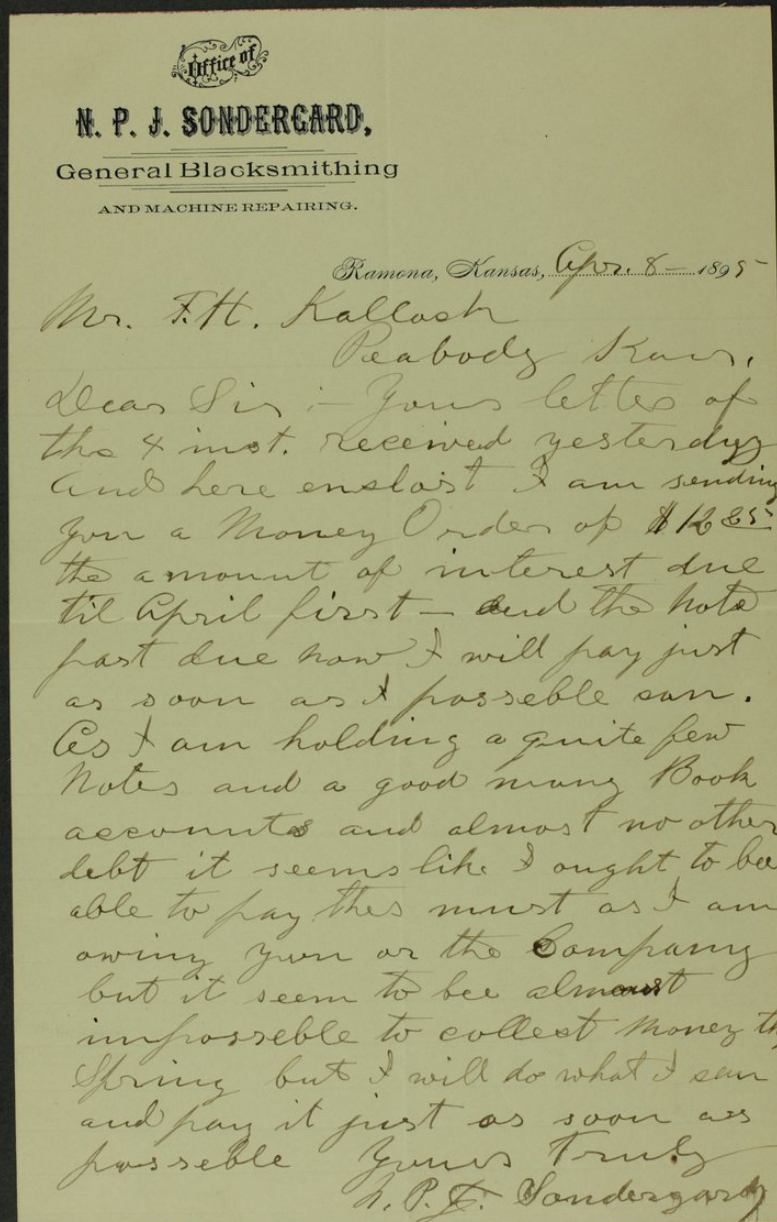 Office of
N. P. J. SONDERGARD,
General Blacksmithing
AND MACHINE REPAIRING.
Ramona, Kansas, Apr. 8 – 1895
Mr. F. H. Kollosh
Peabody Kans.
Dear Sir :– Yours letter of
the 4 inst. received yesterday
and here enclosit I am sending
you a Money Order of $12 85
the amount of interest due
til April first – and the note
past due now I will pay just
as soon as I posseble can.
As I am holding a quite few
Notes and a good many Book
accounts and almost no other
debt it seems like I ought to bee
able to pay thes must as I am
owing you or the Company
but it seem to bee almost
imposseble to collect money
Spring but I will do what I can
and pay it just as soon as
posseble Yours Truly
N. P. J. Sondergard